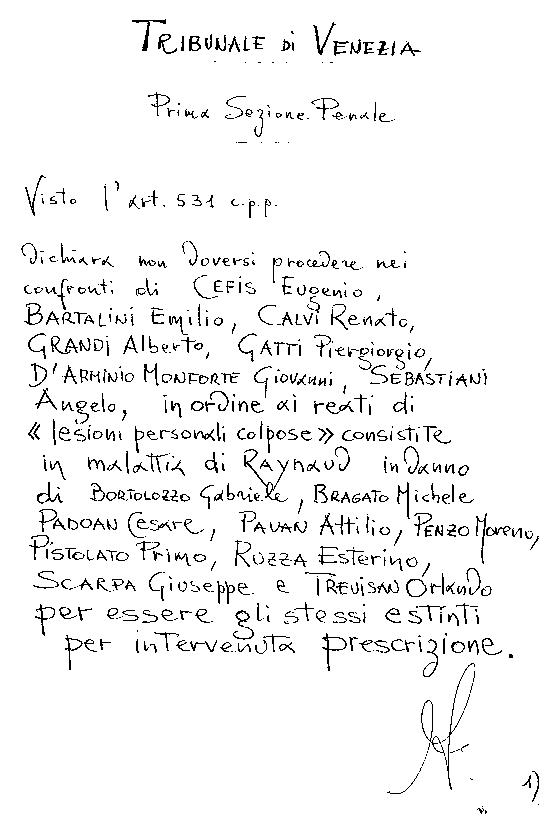 TRIBUNALE di VENEZIA
Prima Sezione Penale
Visto l'art. 531 c.p.p.
dichiara non doversi procedere nei
confronti di CEFIS Eugenio,
BARTALINI Emilio, CALVI Renato,
GRANDI Alberto, GATTI Piergiorgio,
D'ARMINIO MONFORTE Giovanni, SEBASTIANI
Angelo, in ordine ai reati di
« lesioni personali colpose » consistite
in malattia di RAYNAUD in danno
di BORTOLOZZO Gabriele, BRAGATO Michele
PADOAN Cesare, PAVAN Attilio, PENZO Moreno,
PISTOLATO Primo, RUZZA Esterino,
SCARPA Giuseppe e TREVISAN Orlando
per essere gli stessi estinti
per intervenuta prescrizione.
1)